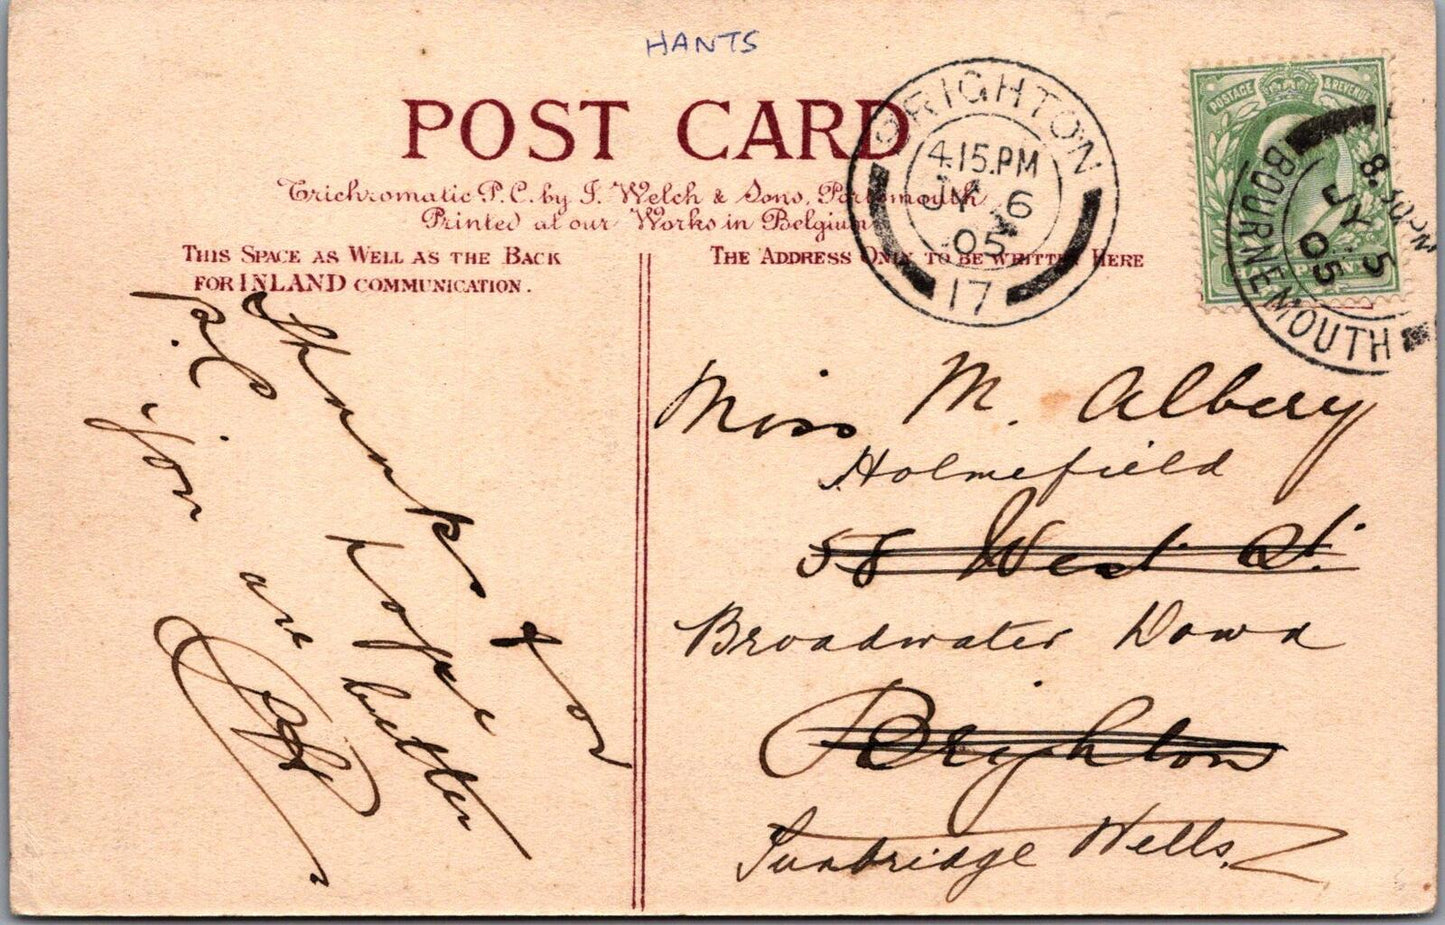 HANTS
POST CARD
Trichromatic P.C. by J. Welch & Sons, Portsmouth
Printed at our Works in Belgium
THIS SPACE AS WELL AS THE BACK
FOR INLAND COMMUNICATION.
THE ADDRESS ONLY TO BE WRITTEN HERE
BRIGHTON
4.15.PM
JY 6
05
17
POSTAGE & REVENUE
HALFPENNY
BOURNEMOUTH
JY 5
05
Thanks for
p.c. hope
you are better
Miss M. Albery
Holmefield
58 West St.
Broadwater Down
Brighton
Tunbridge Wells.